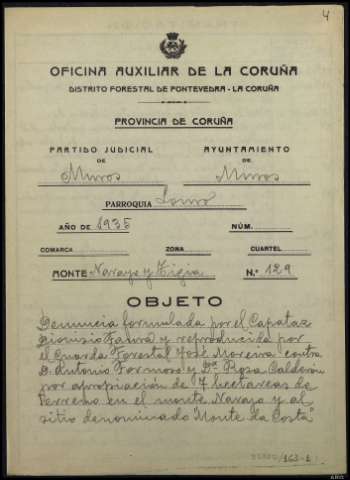 4
OFICINA AUXILIAR DE LA CORUÑA
DISTRITO FORESTAL DE PONTEVEDRA - LA CORUÑA
PROVINCIA DE CORUÑA
PARTIDO JUDICIAL AYUNTAMIENTO
DE DE
Muros Muros
PARROQUIA Louro
AÑO DE 1935 NÚM.
COMARCA ZONA CUARTEL
MONTE Naraya y Tigia N.º 129
OBJETO
Denuncia formulada por el Capataz
Dionisio y reproducida por
el Guarda Forestal José Moreira contra
D. Antonio Formoso y Dª Rosa Calderón
por apropiación de 7 hectareas de
terreno en el monte Naraya y al
sitio denominado "Monte da Costa"